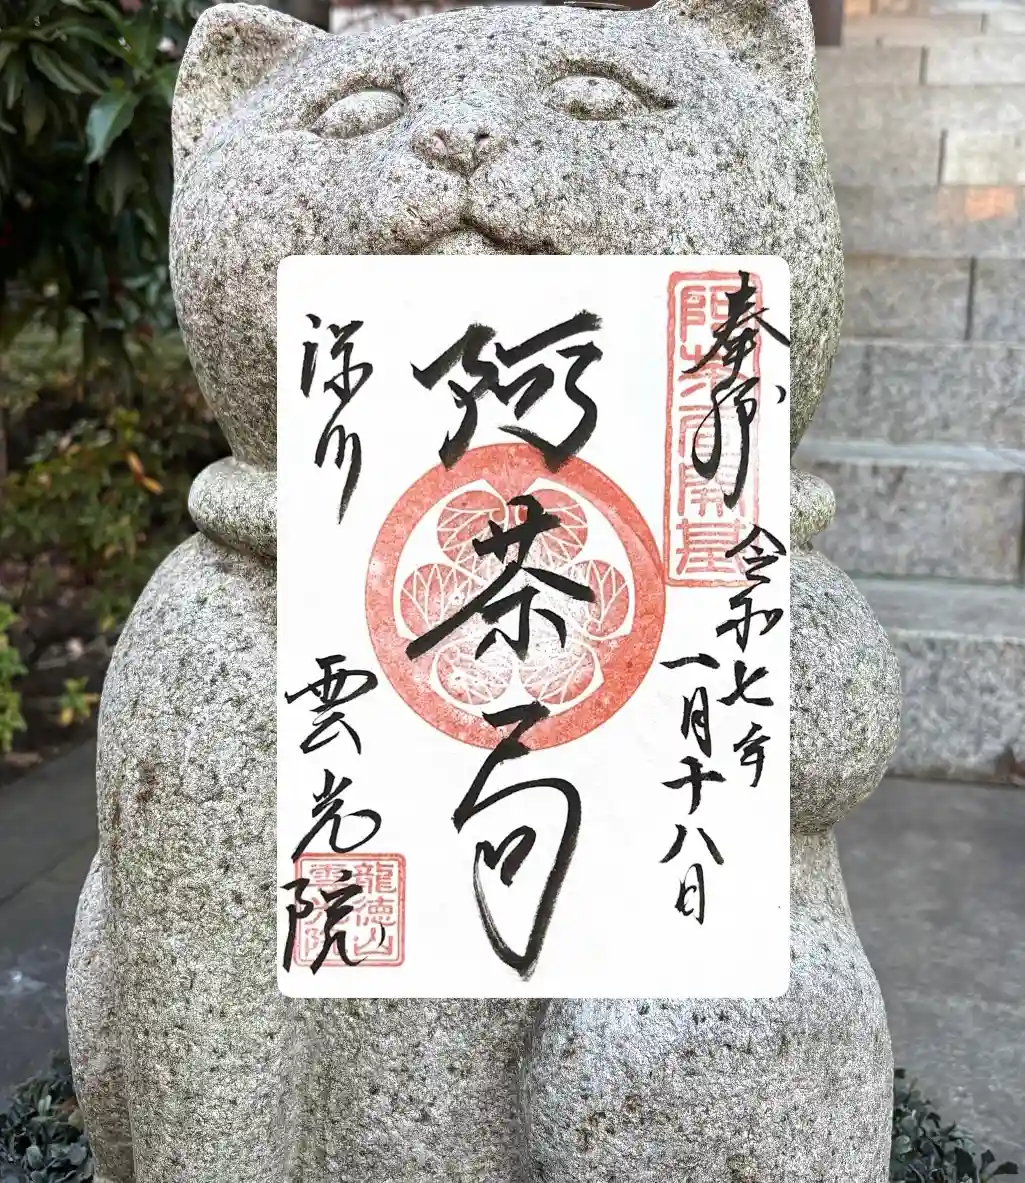 奉拝
阿茶局開基
令和七年
一月十八日
阿茶局
深川
雲光院
龍徳山
雲光院